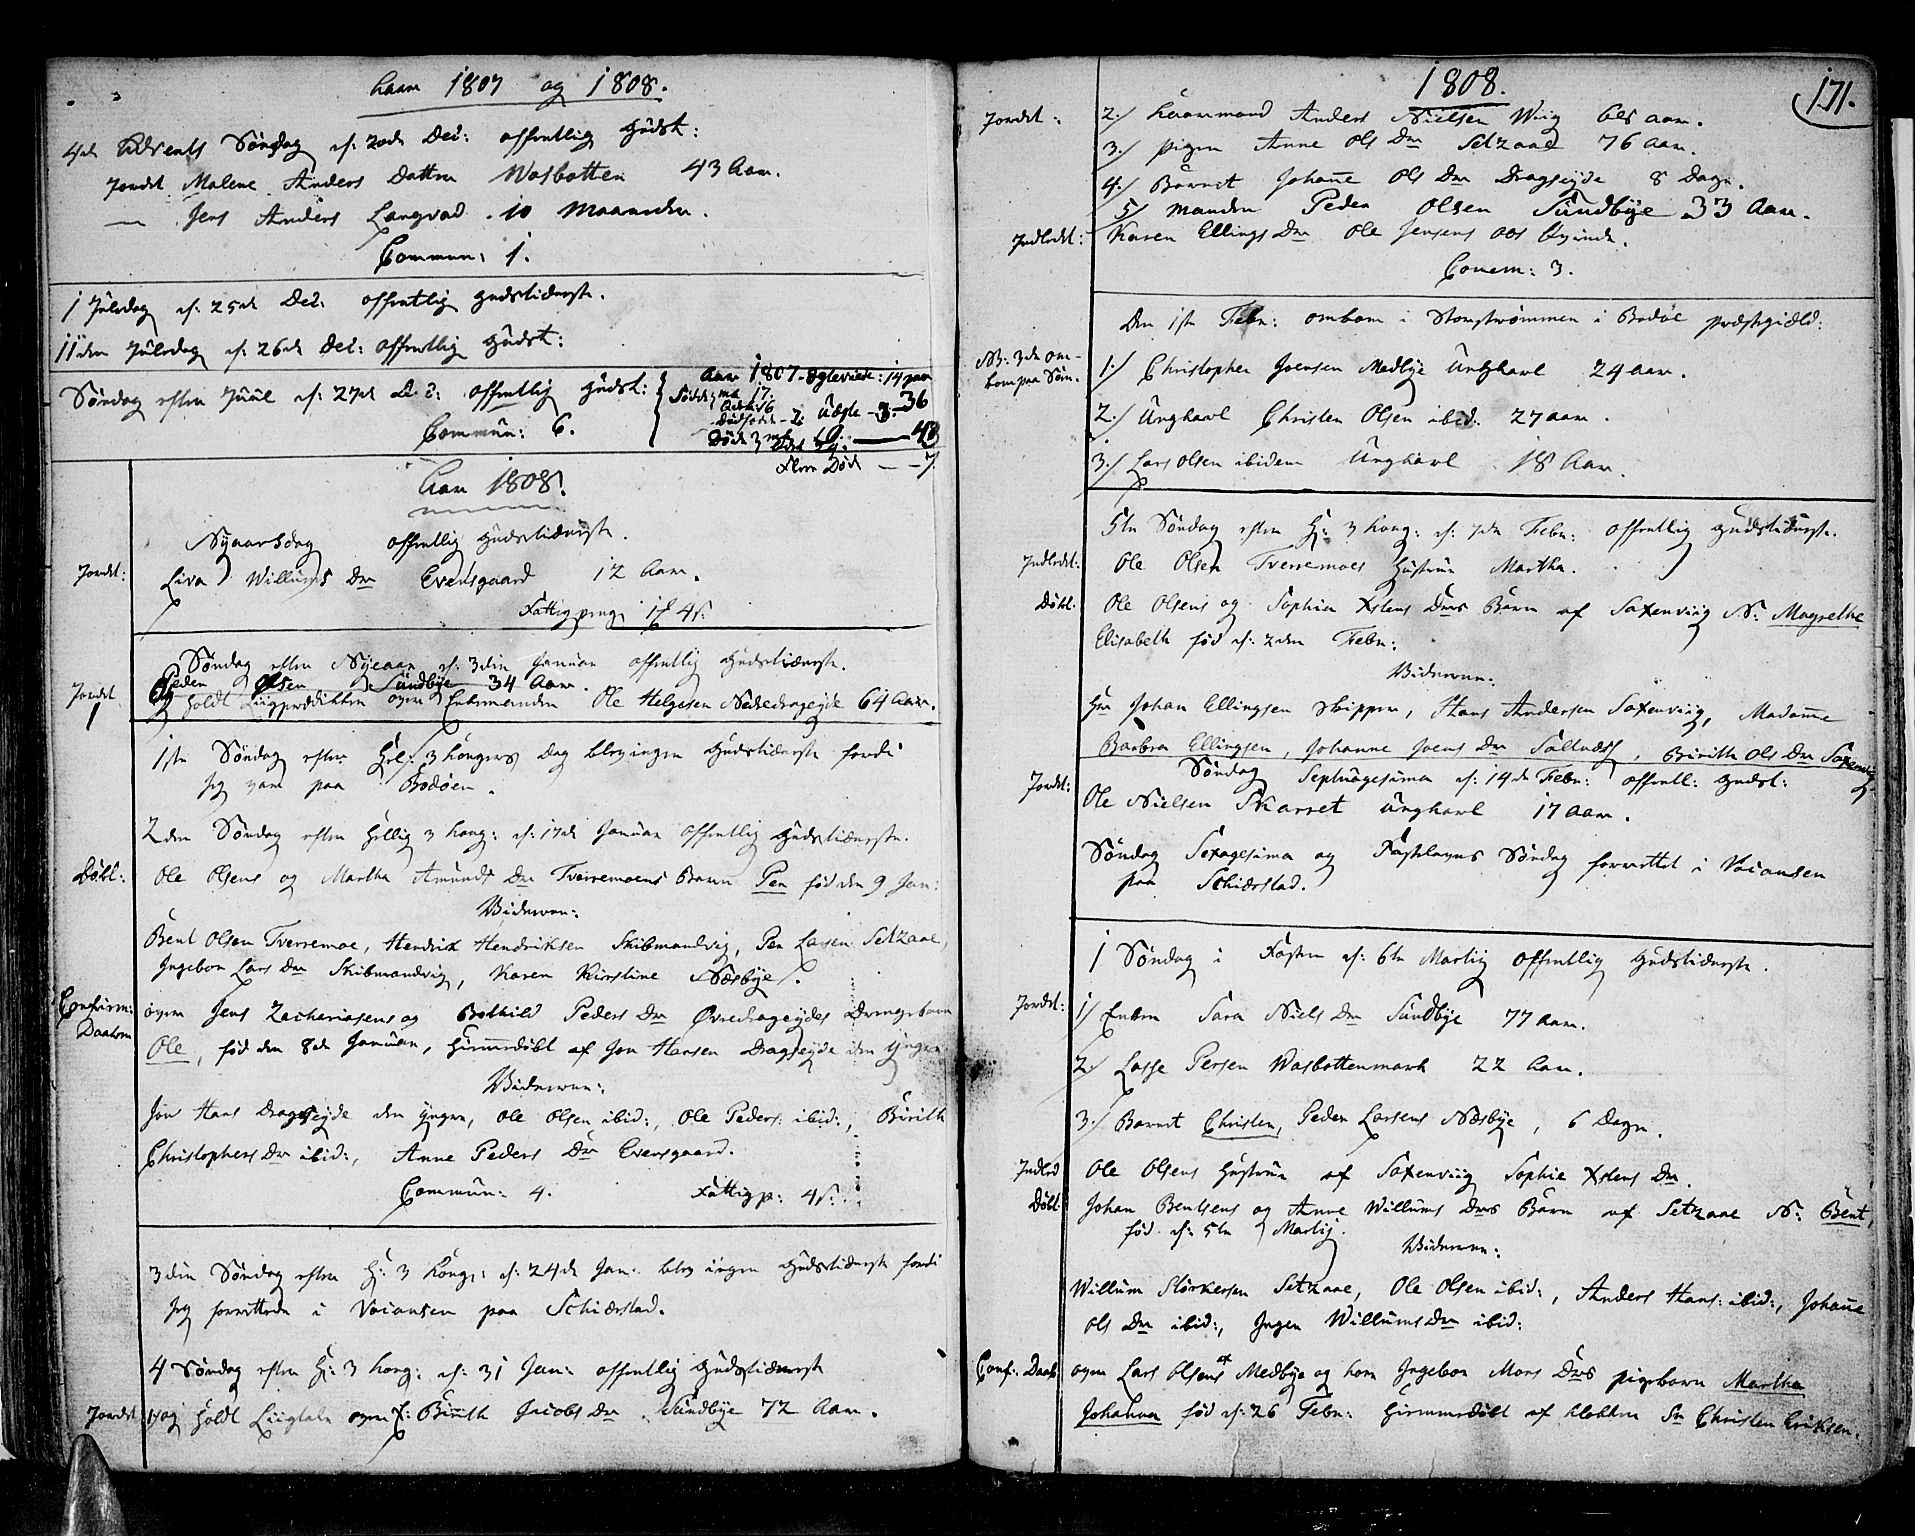 Aar 1807 og 1808.
4de Advents Søndag d: 20de Dec: offentlig Gudst:
Jordet Malene Anders Datter Wasbotten 43 Aar.
— Jens Anders Langvad 10 Maaneder.
Commun: 1.
1 Juledag d: 25de Dec: offentlig Gudstieneste.
II den Juledag d: 26de Dec: offentlig Gudst:
Søndag efter Juul d: 27de Dec: offentlig Gudst:
Commun: 6.
Aar 1807. Egteviede: 14 par
Fødde mk 17.
qvk 16
Dødfødte - 2. Uægte - 3. 36
Døde 43
Flere Død — 7.
Aar 1808.
Nyaarsdag offentlig Gudstieneste.
Jordet: Liva Willums Dr Evensgaard 12 Aar.
Fattigpeng:
Søndag efter Nyeaar d: 3die Januar offentlig Gudstieneste.
Peder Olsen Sundbye 34 Aar.
Jordet Og holdt Liigprædikken over Enkemanden Ole Helgesen Nedredragejde 64 Aar.
1ste Søndag efter Hel: 3 Kongers Dag blev ingen Gudstieneste fordi
jeg var paa Bodøen.
2den Søndag efter Hellig 3 Kong: d: 17de Januar offentlig Gudstieneste.
Døbt: Ole Olsens og Martha Amunds Dr Tverremoens Barn Per fød den 9 Jan:
Vidnerne:
Bent Olsen Tverremoe, Hendrik Hendriksen Skibmandvig, Per Larsen Setzaae,
Ingebor Lars Dr Skibmandvig, Karen Kirstine Næsbye.
Confirm: Daaben over Jens Zachariasens og Bothild Peders Dr Øvredragejdes Drengebarn
Ole, fød den 8de Januar, hiemmedøbt af Jon Hansen Dragsejde den yngre
Vidnerne:
Jon Hans Dragsejde den yngre, Ole Olsen ibid:, Ole Peders: ibid:, Birith
Christophers Dr ibid:, Anne Peders Dr Evensgaard.
Commun: 4. Fattigp: 4s:
3die Søndag efter H: 3 Kong: d: 24de Jan: blev ingen Gudstieneste fordi
jeg forrettede i Vaiansen paa Schiærstad.
4 Søndag efter H: 3 Kong: d: 31 Jan: offentlig Gudstieneste
Jordet og holdt Liigtale over Birith Jacobs Dr Sundbye 72 Aar.
1808.
171.
Jordet: 2./ Gaarmand Anders Nielsen Wiig 68 aar.
3./ pigen Anne Ols Dr Setzaae 76 aar.
4./ Barnet Johanne Ols Dr Dragsejde 8 Dage.
5/ Manden Peder Olsen Sundbye 33 Aar.
Indledet: Karen Ellings Dr Ole Jensens Qvinde.
Comm: 3.
Den 1ste Febr: omkom i Storstrømmen i Bodøe præstegield:
NB: 3de omkom paa Søen. 1./ Christopher Joensen Medbye Ungkarl 24 aar.
2./ Ungkarl Christen Olsen ibid: 27 aar.
3./ Lars Olsen ibidem Ungkarl 18 Aar.
5te Søndag efter H: 3 Kong: d: 7de Febr: offentlig Gudstieneste.
Indledet: Ole Olsen Tverremoes Hustrue Martha.
Døbt. Ole Olsens og Sophia Xstens Drs Barn af Saxenviig N: Magrethe
Elisabeth fød d: 2den Febr:
Vidnerne:
Hr Johan Ellingsen Skipper, Hans Andersen Saxenviig, Madame
Barbra Ellingsen, Johanne Joens Dr, Birith Ols Dr Saxenvig
Søndag Septuagesima d: 14de Febr: offentl: Gudst:
Jordet: Ole Nielsen Skarset Ungkarl 17 Aar.
Søndag Sexagesima og Fastelavns Søndag forrettet i Vaiansen
paa Schiærstad.
1 Søndag i Fasten d: 6te Martij offentlig Gudstieneste.
Jordet: 1/ Enken Sara Niels Dr Sundbye 77 Aar.
2./ Lasse Persen Wasbottenmark 22 Aar.
3./ Barnet Christen, Peder Larsens Næsbye, 6 Dage.
Indled Ole Olsens Hustrue af Saxenviig Sophie Xstens Dr.
Døbt Johan Bentsens og Anne Willums Drs Barn af Setzaae N: Bent,
fød d: 5te Martij.
Vidnerne:
Willum Størkersen Setzaae, Ole Olsen ibid:, Anders Hans: ibid:, Johanne
Ols Dr ibid:, Inger Willums Dr ibid:
Conf: Daab over Lars Olsens af Medbye og Ingebor Mons Drs pigebarn Martha
Johanna fød d: 26 Febr: hiemmedøbt af klokker Sr Christen Eriksen.